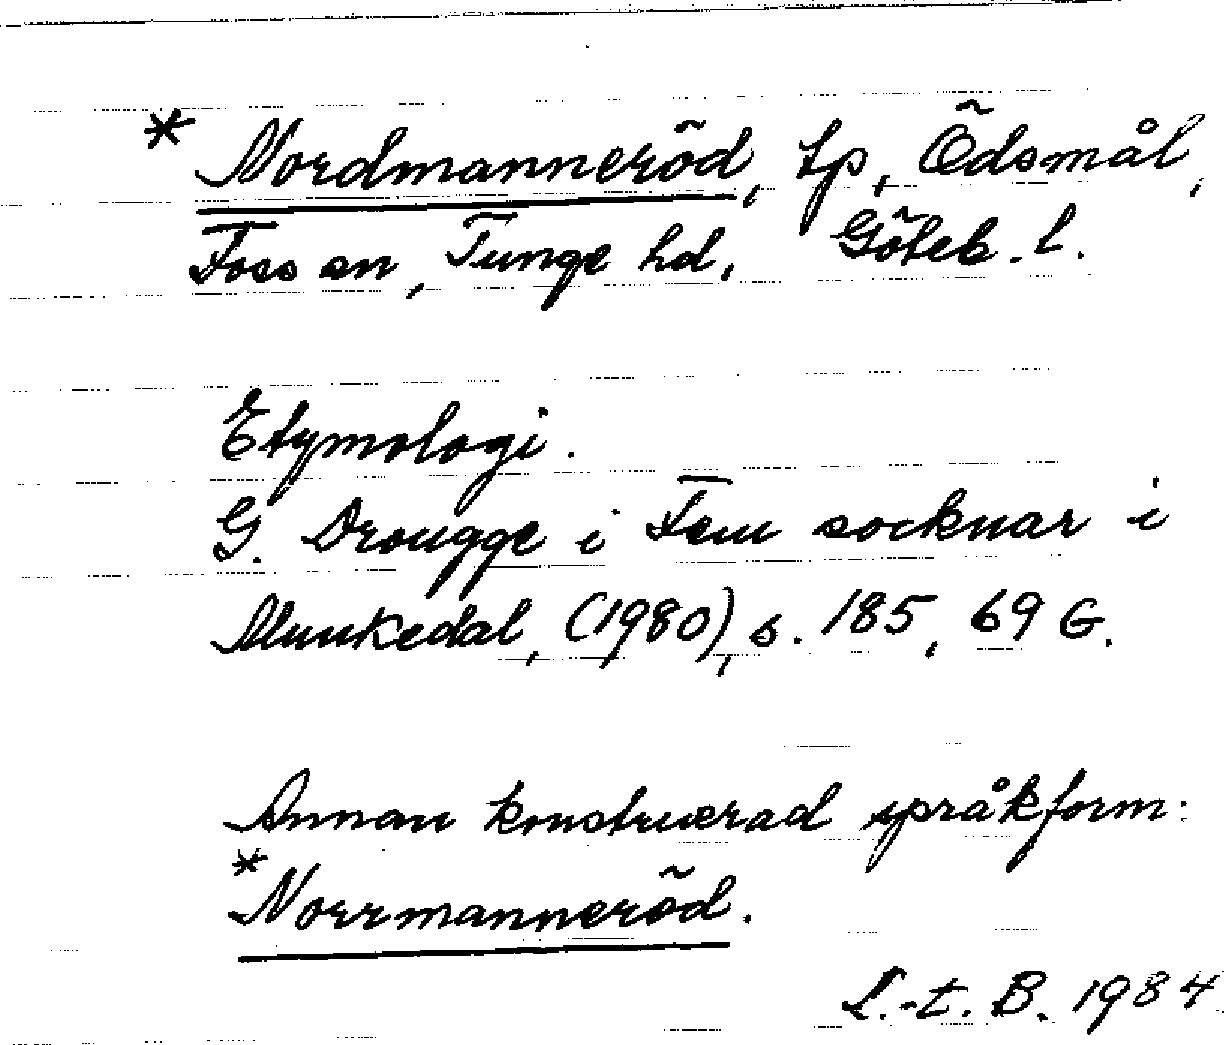 * Nordmanneröd, tp, Ödsmål,
Foss sn, Tunge hd, Göteb. l.
Etymologi.
G. Drougge i Fem socknar i
Munkedal, (1980), s. 185, 69 G.
Annan konstruerad språkform:
*Norrmanneröd.
L.-t. B. 1984